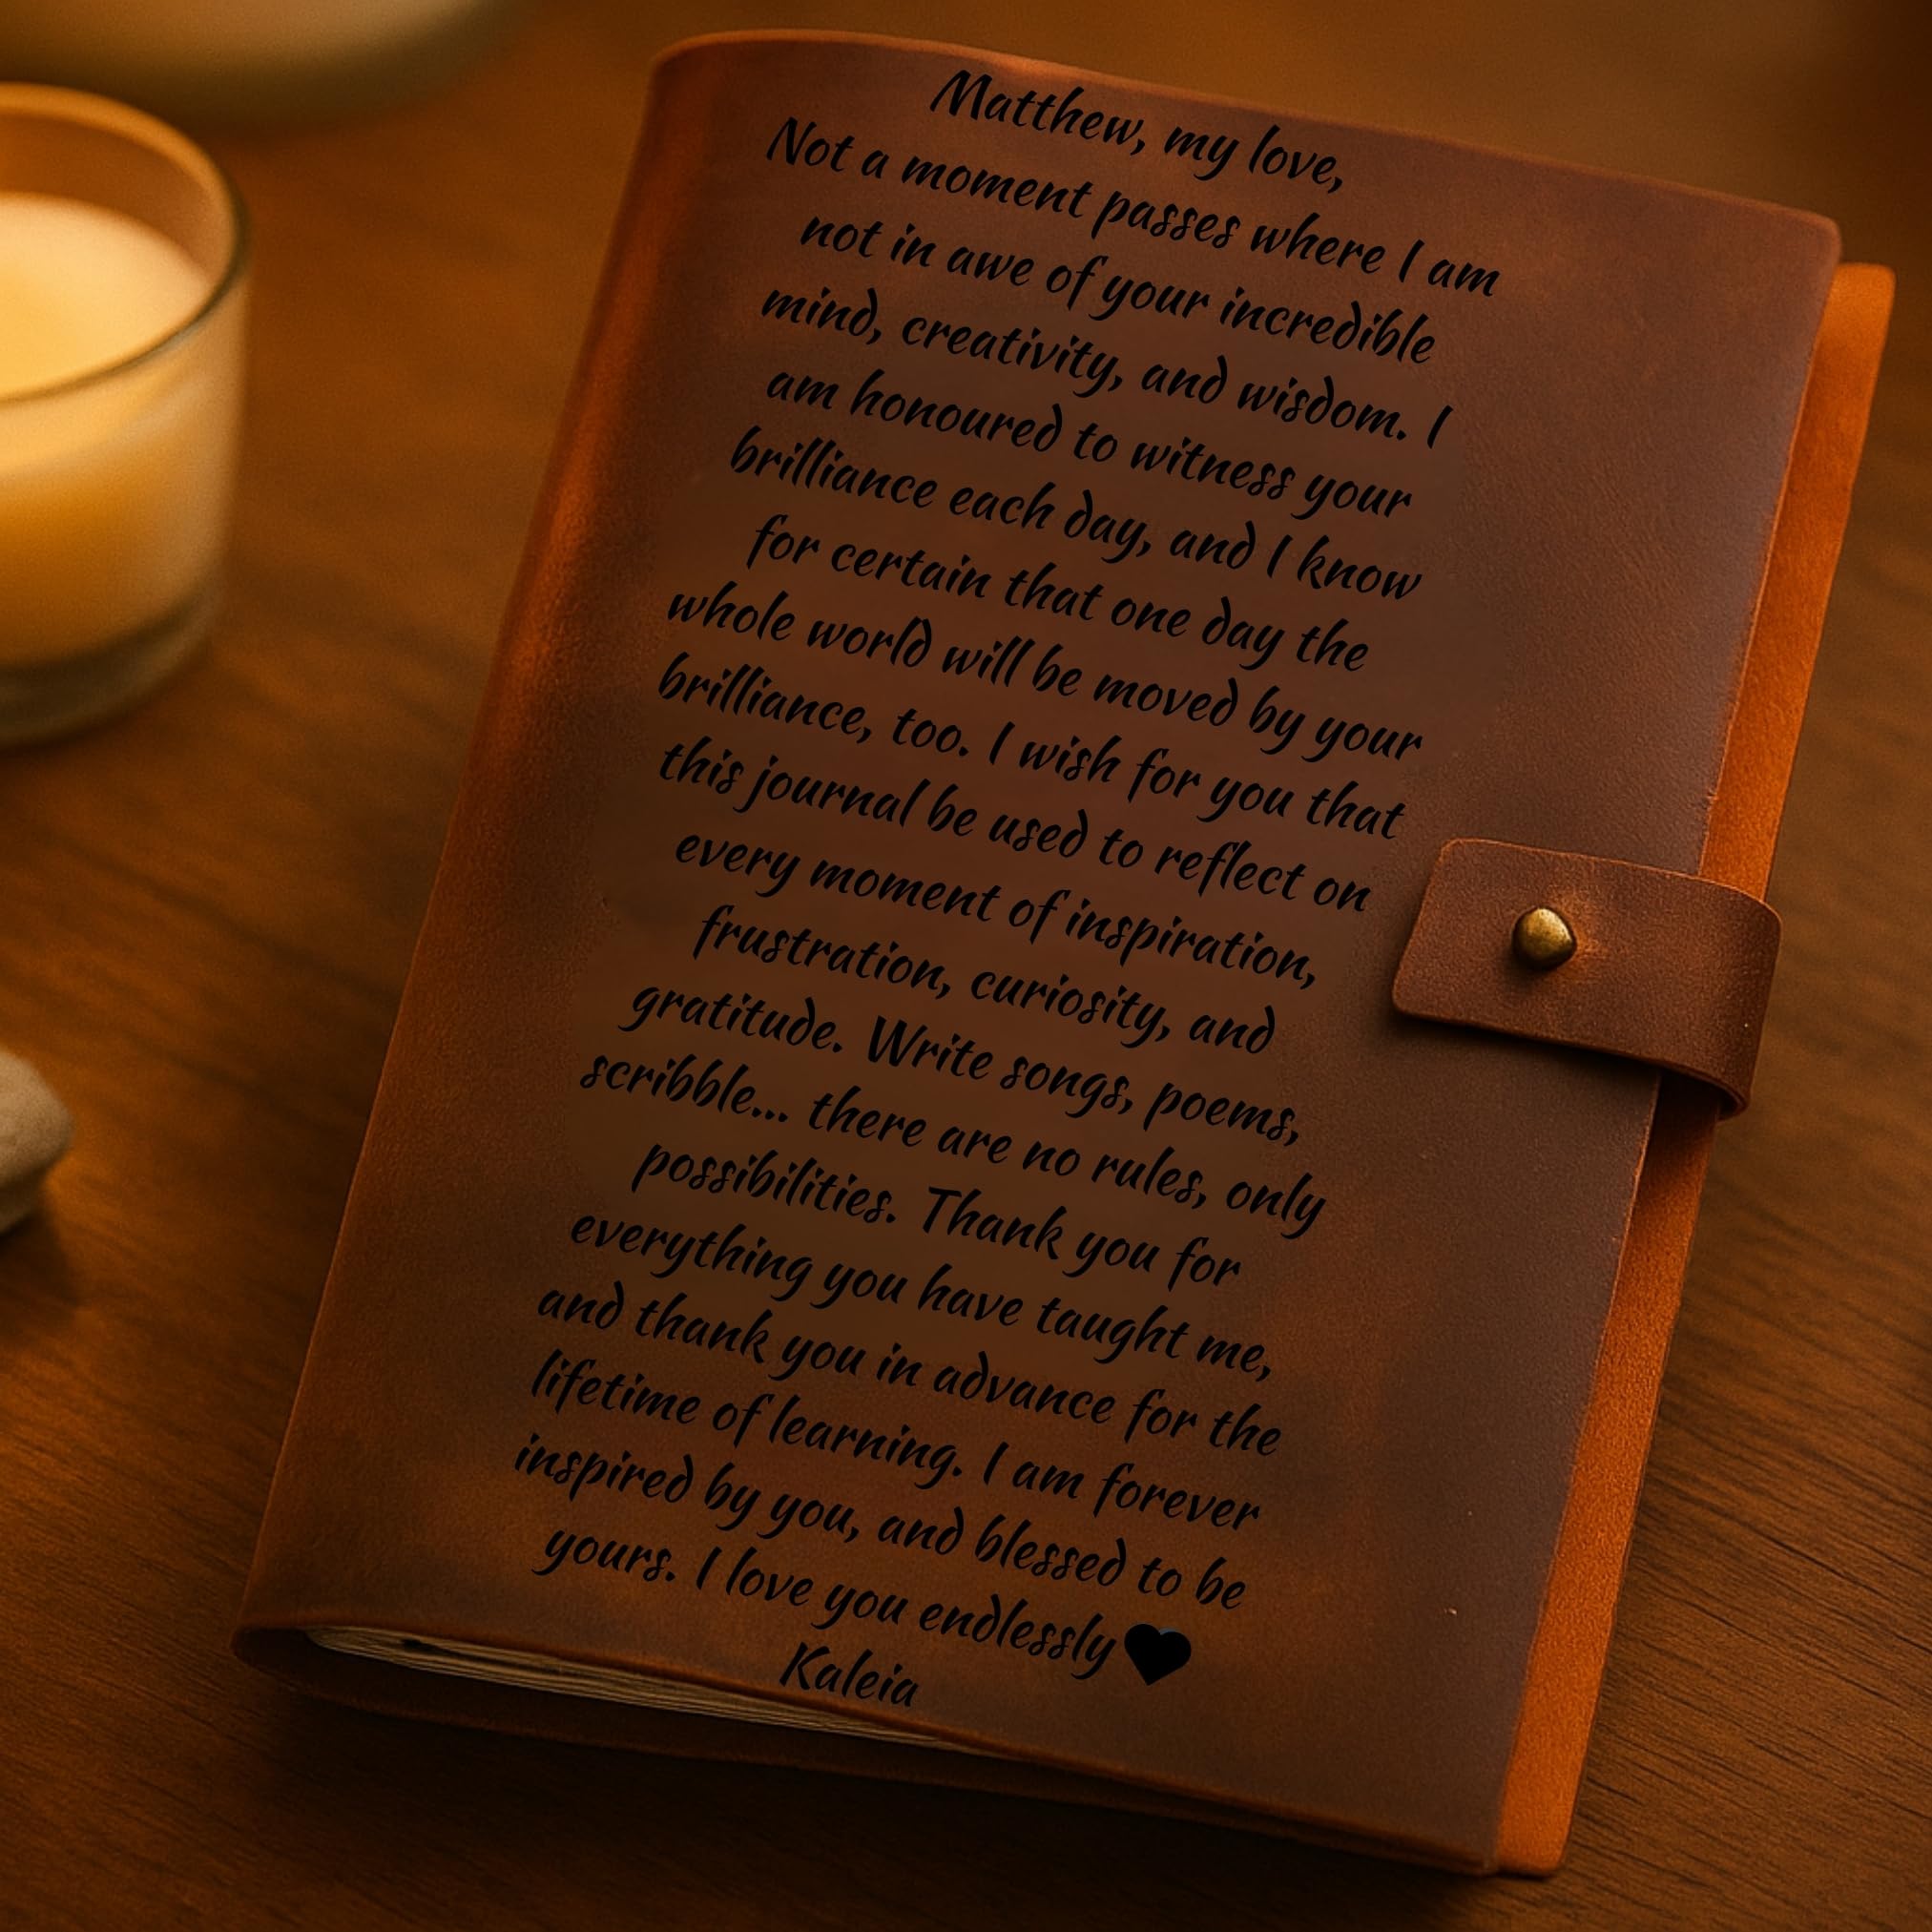 Matthew, my love,
Not a moment passes where I am
not in awe of your incredible
mind, creativity, and wisdom. I
am honoured to witness your
brilliance each day, and I know
for certain that one day the
whole world will be moved by your
brilliance, too. I wish for you that
this journal be used to reflect on
every moment of inspiration,
frustration, curiosity, and
gratitude. Write songs, poems,
scribble... there are no rules, only
possibilities. Thank you for
everything you have taught me,
and thank you in advance for the
lifetime of learning. I am forever
inspired by you, and blessed to be
yours. I love you endlessly🖤
Kaleia